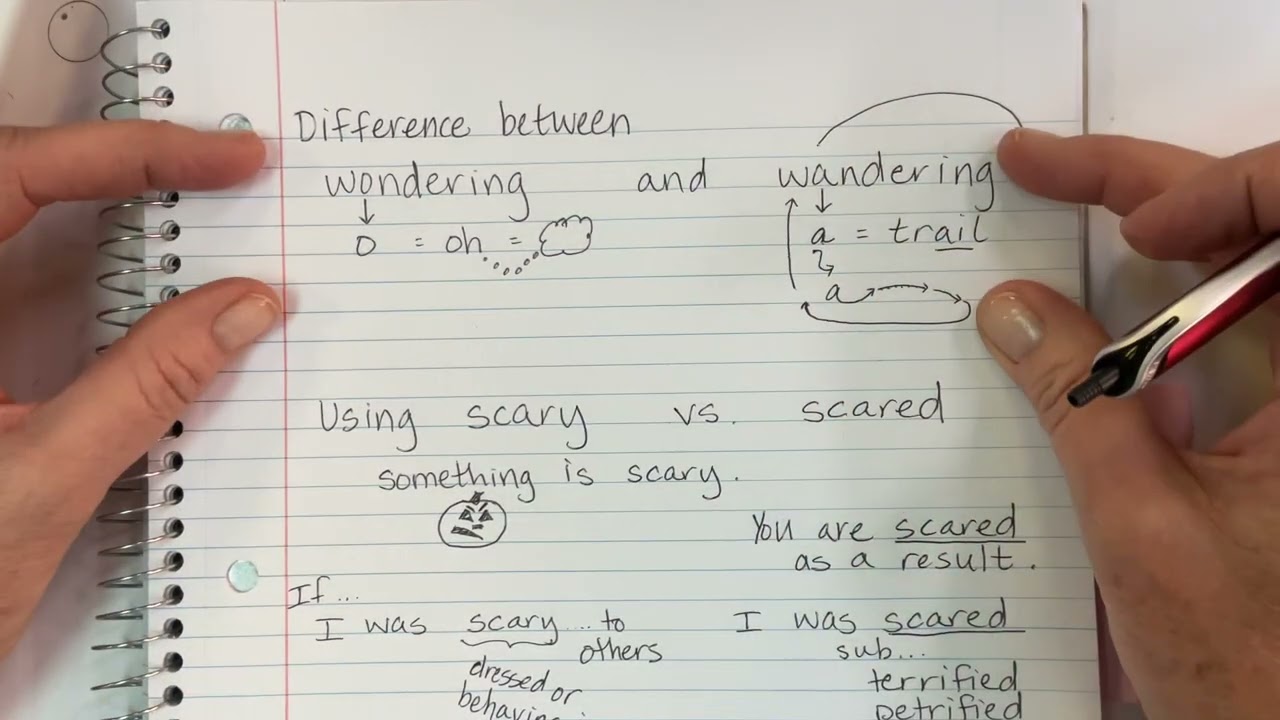 Difference between
wondering and wandering
o = oh = a = trail
a
Using scary vs. scared
something is scary.
You are scared
as a result.
If...
I was scary ... to others
dressed or
I was scared
sub...
terrified
petrified